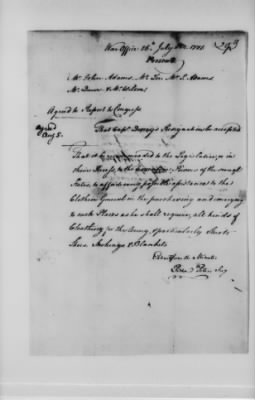 War Office 26th July 1778
293
Present
Mr. John Adams, Mr. Lee Mr. S. Adams
Mr. Duer &
Agreed to Report to Congress
Agreed
Aug. 5.
That Capt. Resignation be accepted
That it be recommended to the Legislature, or in
their Recess, to the Executive Powers of the several
States, to afford every possible assistance to the
Clothier General in the purchasing and conveying
to such Places as he shall require, all kinds of
Cloathing for the Army, & particularly Shirts
Shoes Stockings & Blankets
Extract from the Minutes
Richard Peters Secy